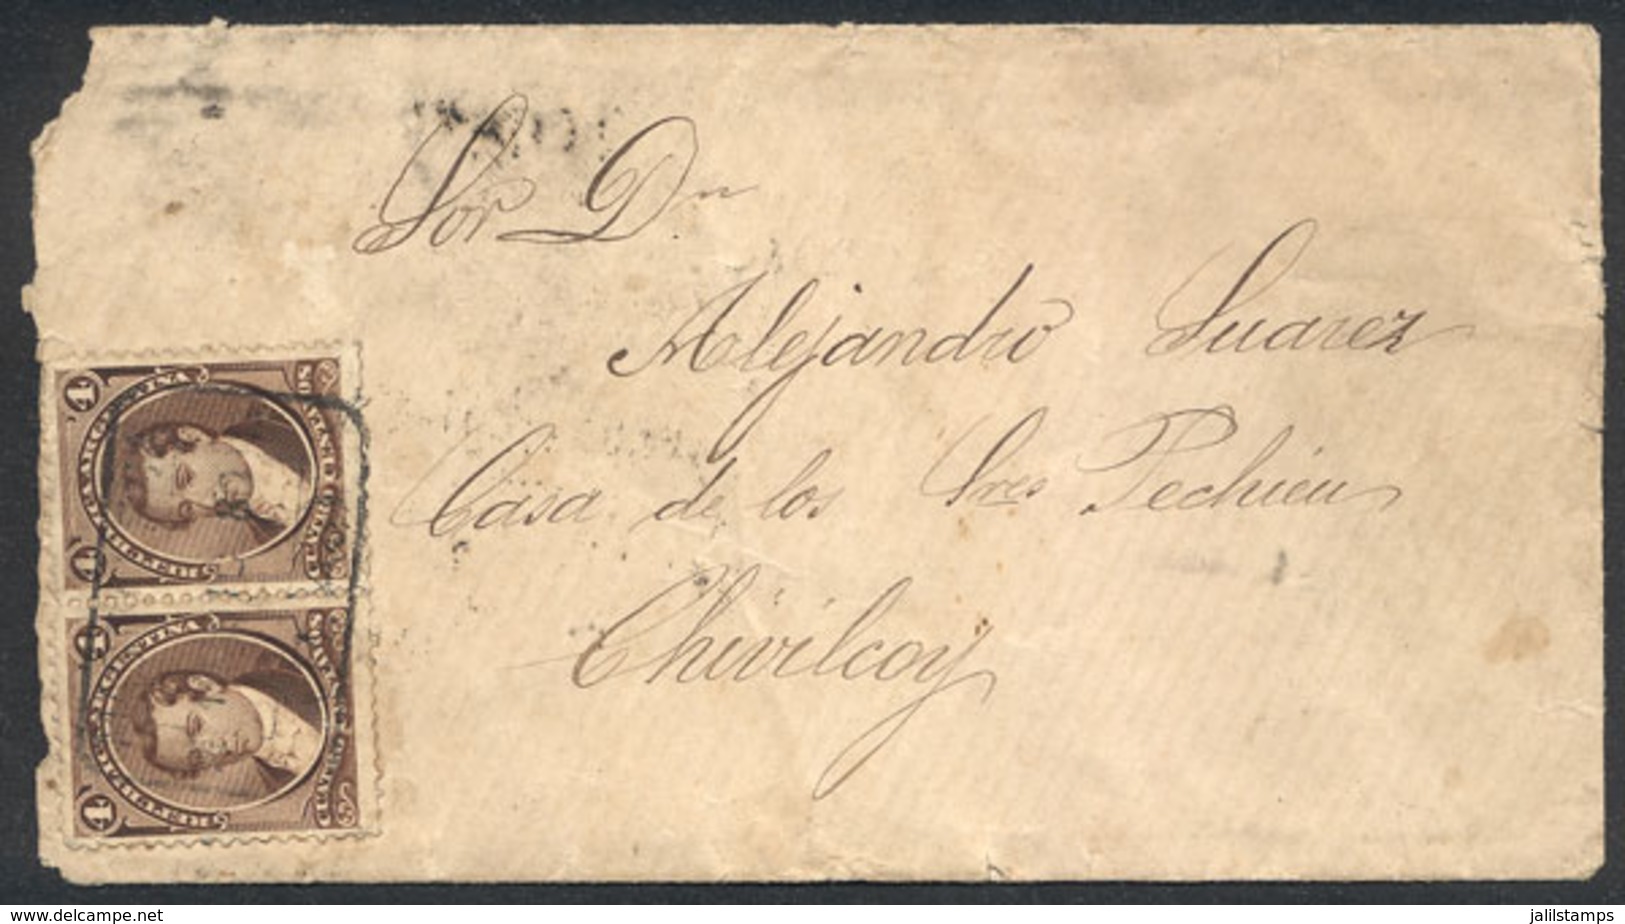 Sor Dn
Alejandro Suarez
Casa de los Sres Pechieu
Chivilcoy
4 4
REPUBLICA ARGENTINA
CUATRO CENTAVOS
4 4
REPUBLICA ARGENTINA
CUATRO CENTAVOS
www.delcampe.net
jalilstamps